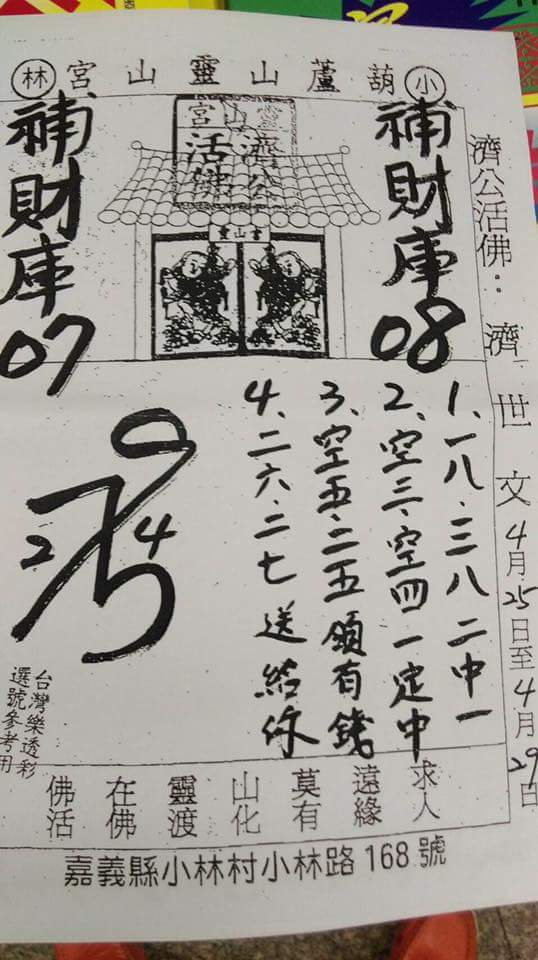 小葫蘆山靈山宮林
濟公活佛：濟世文4月25日至4月29日
補財庫08
靈山宮
濟公
活佛
補財庫07
1、一八、三八二中一
2、空三、空四一定中
3、空五、二五領有錢
4、二六、二七送給你
2
4
台灣樂透彩
選號參考用
佛在靈山莫遠求
活佛渡化有緣人
嘉義縣小林村小林路168號